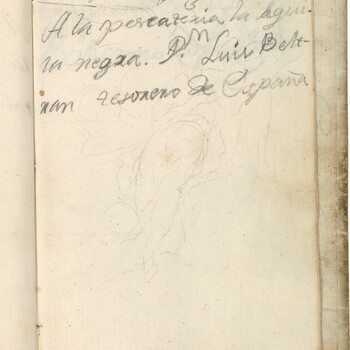 A la pescateria la agui-
la negra. D.n Luis Belt-
ran tesorero de España